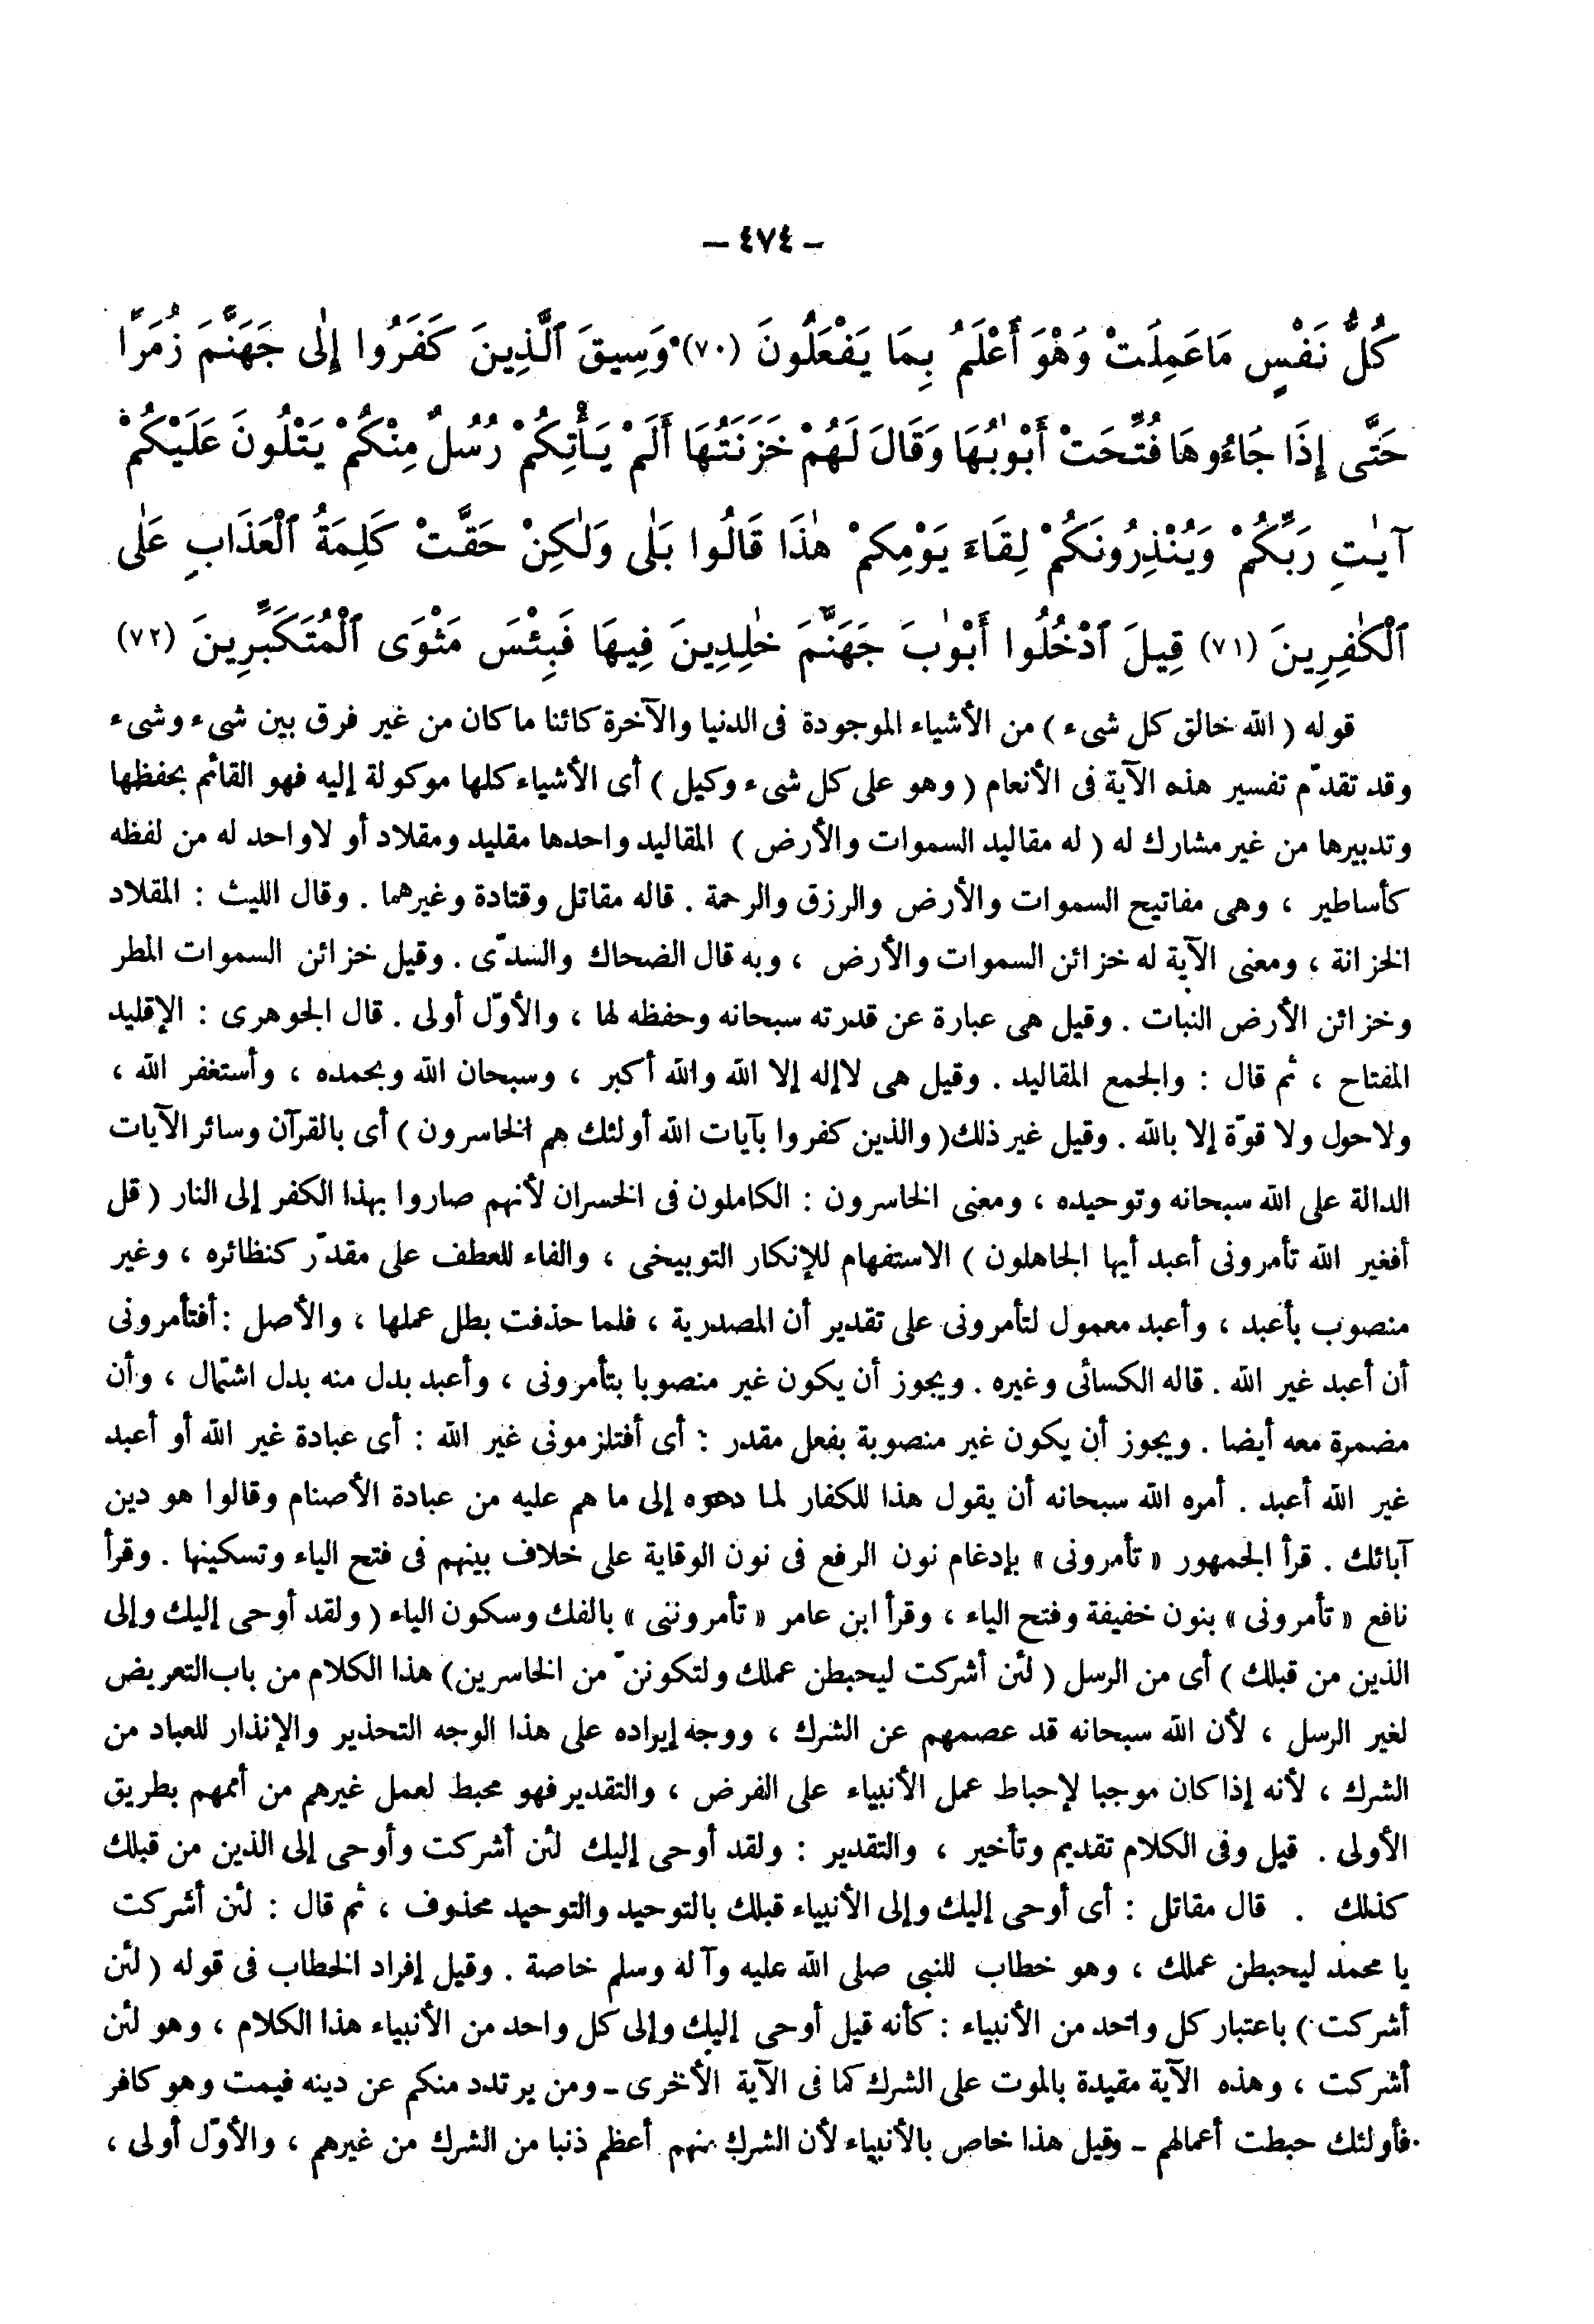 - ٤٧٤ -
كُلُّ نَفْسٍ مَاعَمِلَتْ وَهْوَ أَعْلَمُ بِمَا يَفْعَلُونَ (٧٠) وَسِيقَ ٱلَّذِينَ كَفَرُوا إِلٰى جَهَنَّمَ زُمَرًا
حَتَّى إِذَا جَاءُوهَا فُتِّحَتْ أَبْوٰبُهَا وَقَالَ لَهُمْ خَزَنَتُهَا أَلَمْ يَأْتِكُمْ رُسُلٌ مِنْكُمْ يَتْلُونَ عَلَيْكُمْ
آيٰتِ رَبِّكُمْ وَيُنْذِرُونَكُمْ لِقَاءَ يَوْمِكمْ هٰذَا قَالُوا بَلٰى وَلٰكِنْ حَقَّتْ كَلِمَةُ ٱلْعَذَابِ عَلٰى
ٱلْكٰفِرِينَ (٧١) قِيلَ ٱدْخُلُوا أَبْوٰبَ جَهَنَّمَ خٰلِدِينَ فِيهَا فَبِئْسَ مَثْوَى ٱلْمُتَكَبِّرِينَ (٧٢)
قوله ( الله خالق كل شىء ) من الأشياء الموجودة فى الدنيا والآخرة كائنا ما كان من غير فرق بين شىء وشىء
وقد تقدّم تفسير هذه الآية فى الأنعام ( وهو على كل شىء وكيل ) أى الأشياء كلها موكولة إليه فهو القائم بحفظها
وتدبيرها من غير مشارك له ( له مقاليد السموات والأرض ) المقاليد واحدها مقليد ومقلاد أو لاواحد له من لفظه
كأساطير ، وهى مفاتيح السموات والأرض والرزق والرحمة . قاله مقاتل وقتادة وغيرهما . وقال الليث : المقلاد
الخزانة ، ومعنى الآية له خزائن السموات والأرض ، وبه قال الضحاك والسدّى . وقيل خزائن السموات المطر
وخزائن الأرض النبات . وقيل هى عبارة عن قدرته سبحانه وحفظه لها ، والأوّل أولى . قال الجوهرى : الإقليد
المفتاح ، ثم قال : والجمع المقاليد . وقيل هى لاإله إلا الله والله أكبر ، وسبحان الله وبحمده ، وأستغفر الله ،
ولاحول ولا قوّة إلا بالله . وقيل غير ذلك( والذين كفروا بآيات الله أولئك هم الخاسرون ) أى بالقرآن وسائر الآيات
الدالة على الله سبحانه وتوحيده ، ومعنى الخاسرون : الكاملون فى الخسران لأنهم صاروا بهذا الكفر إلى النار ( قل
أفغير الله تأمرونى أعبد أيها الجاهلون ) الاستفهام للإنكار التوبيخى ، والفاء للعطف على مقدّر كنظائره ، وغير
منصوب بأعبد ، وأعبد معمول لتأمرونى على تقدير أن المصدرية ، فلما حذفت بطل عملها ، والأصل : أفتأمرونى
أن أعبد غير الله . قاله الكسائى وغيره . ويجوز أن يكون غير منصوبا بتأمرونى ، وأعبد بدل منه بدل اشتمال ، وأن
مضمرة معه أيضا . ويجوز أن يكون غير منصوبة بفعل مقدر : أى أفتلزمونى غير الله : أى عبادة غير الله أو أعبد
غير الله أعبد . أمره الله سبحانه أن يقول هذا للكفار لما دعوه إلى ما هم عليه من عبادة الأصنام وقالوا هو دين
آبائك . قرأ الجمهور « تأمرونى » بإدغام نون الرفع فى نون الوقاية على خلاف بينهم فى فتح الياء وتسكينها . وقرأ
نافع « تأمرونى » بنون خفيفة وفتح الياء ، وقرأ ابن عامر « تأمروننى » بالفك وسكون الياء ( ولقد أوحى إليك وإلى
الذين من قبلك ) أى من الرسل ( لئن أشركت ليحبطن عملك ولتكوننّ من الخاسرين) هذا الكلام من باب التعريض
لغير الرسل ، لأن الله سبحانه قد عصمهم عن الشرك ، ووجه إيراده على هذا الوجه التحذير والإنذار للعباد من
الشرك ، لأنه إذا كان موجبا لإحباط عمل الأنبياء على الفرض ، والتقدير فهو محبط لعمل غيرهم من أممهم بطريق
الأولى . قيل وفى الكلام تقديم وتأخير ، والتقدير : ولقد أوحى إليك لئن أشركت وأوحى إلى الذين من قبلك
كذلك . قال مقاتل : أى أوحى إليك وإلى الأنبياء قبلك بالتوحيد والتوحيد محذوف ، ثم قال : لئن أشركت
يا محمد ليحبطن عملك ، وهو خطاب للنبى صلى الله عليه وآله وسلم خاصة . وقيل إفراد الخطاب فى قوله ( لئن
أشركت ) باعتبار كل واحد من الأنبياء : كأنه قيل أوحى إليك وإلى كل واحد من الأنبياء هذا الكلام ، وهو لئن
أشركت ، وهذه الآية مقيدة بالموت على الشرك كما فى الآية الأخرى - ومن يرتدد منكم عن دينه فيمت وهو كافر
فأولئك حبطت أعمالهم - وقيل هذا خاص بالأنبياء لأن الشرك منهم أعظم ذنبا من الشرك من غيرهم ، والأوّل أولى ،